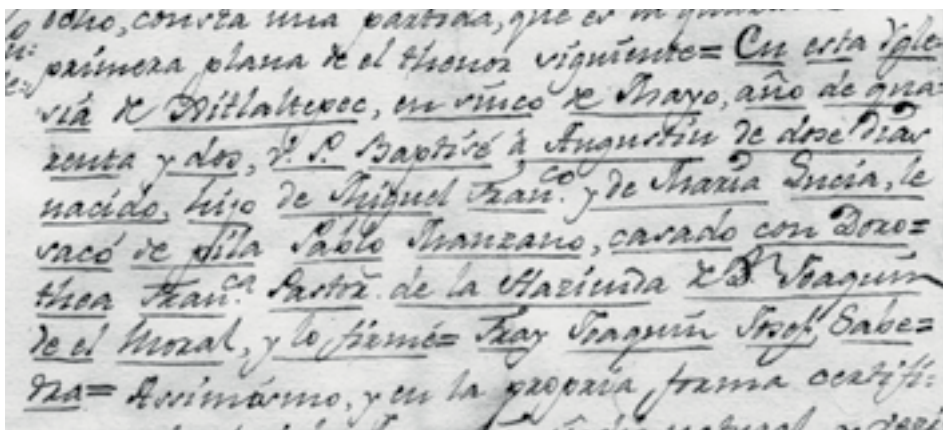 ocho, consta una partida, que es
primera plana de el thenor siguiente= En esta Ygle-
sia de Xitlaltepec, en sinco de Mayo, año de qua-
renta y dos, P. Baptisé à Augustin de dose dias
nacido, hijo de Miguel Fran.co y de Maria Lucia, le
sacó de pila Pablo Manzano, casado con Doro=
thea Fran.ca Pastor. de la Hazienda de Dn Joaquin
de el Moral, y lo firmé= Fray Joaquin Josef, Sabe=
dra= Assimismo, y en la propria forma certifi-